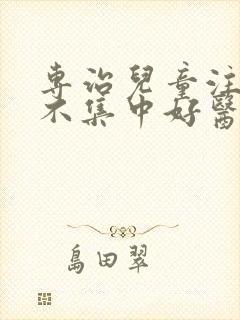 専治兒童注
不集中好醫
島田翠